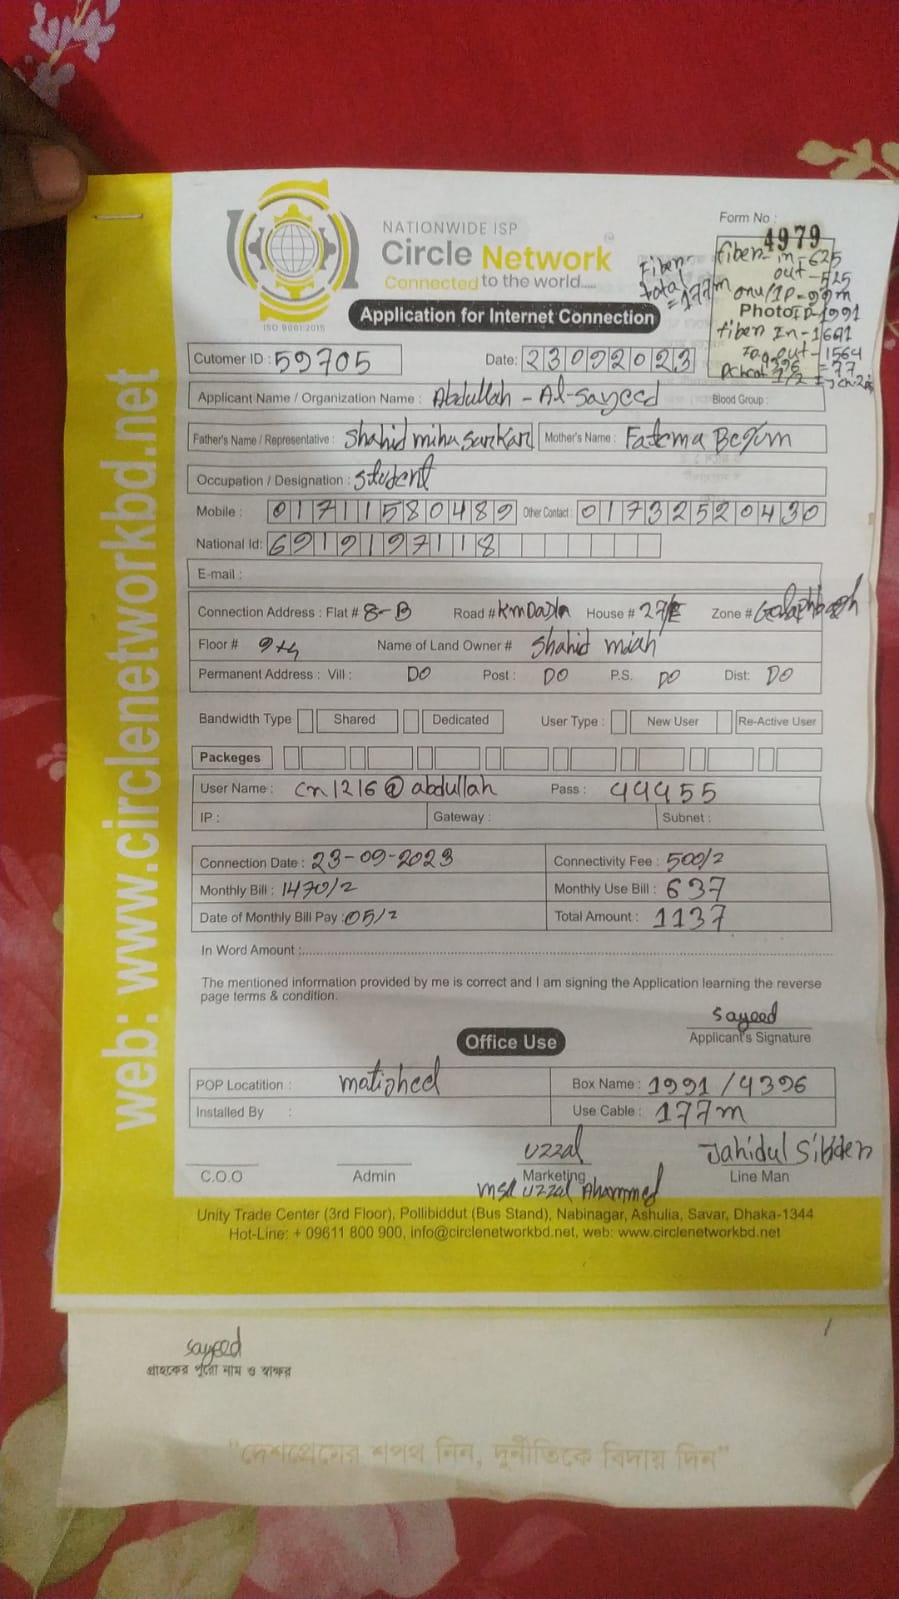 web: www.circlenetworkbd.net
NATIONWIDE ISP
Circle Network
Connected to the world.....
ISO 9001:2015
Application for Internet Connection
Form No :
4979
Fiber
total
=177m
fiber in-625
out-525
onu/IP-99m
Photo ID-1991
fiber In-1641
out-1564
=77
Cutomer ID : 59705
Date: 23092023
Applicant Name / Organization Name : Abdullah - Al-Sayeed
Blood Group :
Father's Name / Representative : Shahid miha Sarkar
Mother's Name : Fatema Begum
Occupation / Designation : Student
Mobile : 01711580489 Other Contact : 01732520430
National Id: 6919197118
E-mail :
Connection Address : Flat # 8-B Road # House # 27/E Zone #
Floor # 9th Name of Land Owner # Shahid miah
Permanent Address : Vill : DO Post : DO P.S. DO Dist: DO
Bandwidth Type Shared Dedicated User Type : New User Re-Active User
Packeges
User Name : cn1216@abdullah Pass : 44455
IP : Gateway : Subnet :
Connection Date : 23-09-2023 Connectivity Fee : 500/2
Monthly Bill : 1470/2 Monthly Use Bill : 637
Date of Monthly Bill Pay : 05/2 Total Amount : 1137
In Word Amount :
The mentioned information provided by me is correct and I am signing the Application learning the reverse
page terms & condition.
Sayeed
Applicant's Signature
Office Use
POP Locatition : Box Name : 1991/4396
Installed By : Use Cable : 177m
Uzzal
Jahidul
C.O.O Admin Marketing Line Man
Uzzal Ahammed
Unity Trade Center (3rd Floor), Pollibiddut (Bus Stand), Nabinagar, Ashulia, Savar, Dhaka-1344
Hot-Line: + 09611 800 900, info@circlenetworkbd.net, web: www.circlenetworkbd.net
Sayeed
গ্রাহকের পুরো নাম ও স্বাক্ষর
"দেশপ্রেমের শপথ নিন, দুর্নীতিকে বিদায় দিন"